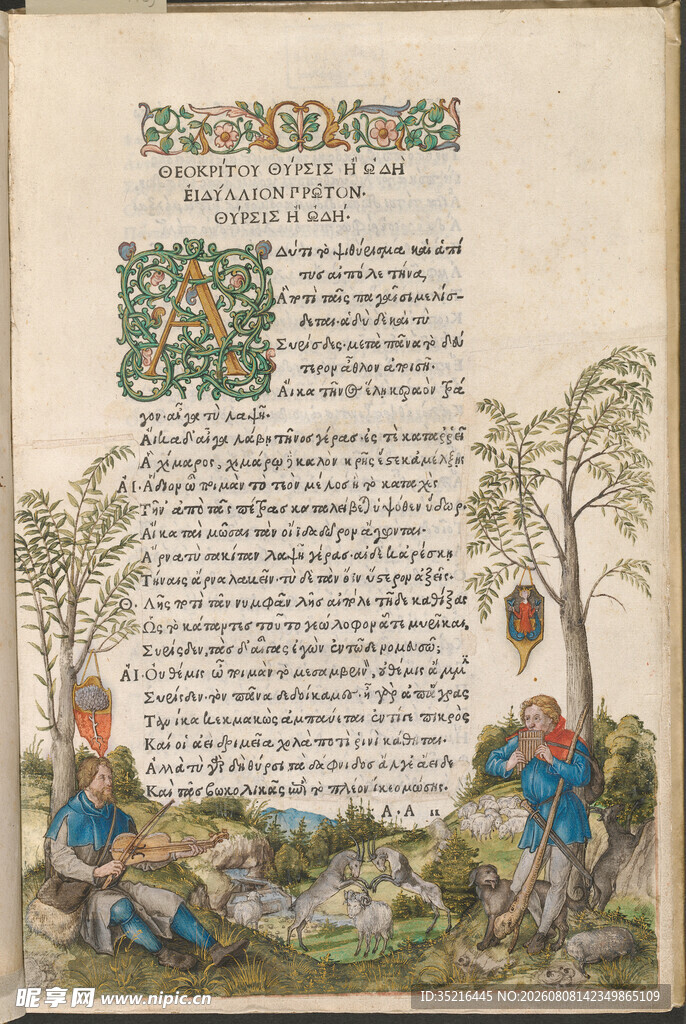 ΘΕΟΚΡΊΤΟΥ ΘΎΡΣΙΣ Ἢ ᾨΔῊ
ἘΙΔΎΛΛΙΟΝ ΠΡΩ͂ΤΟΝ·
ΘΎΡΣΙΣ Ἢ ᾨΔΉ·
Α
Δύ τι τὸ ψιθύρισμα καὶ ἁ πί
τυς αἰπόλε τήνα,
Ἃ ποτὶ ταῖς παγαῖσι μελίσ-
δεται· ἁδὺ δὲ καὶ τὺ
Συρίσδες· μετὰ πᾶνα τὸ δεύ
τερον ἆθλον ἀποισῇ.
Αἴκα τῆνος ἕλῃ κεραὸν τρά
γον· αἶγα τὺ λαψῇ.
Αἴκα δ' αἶγα λάβῃ τῆνος γέρας· ἐς τὲ καταρρεῖ
Ἁ χίμαρος, χιμάρῳ δὲ καλὸν κρῆς ἔστε κ' ἀμέλξῃς
ΑΙ· Ἅδιον ὦ ποιμὰν τὸ τεὸν μέλος ἢ τὸ καταχὲς
Τῆν' ἀπὸ τᾶς πέτρας καταλείβεται ὑψόθεν ὕδωρ.
Αἴκα ταὶ μῶσαι τὰν οἴϊδα δῶρον ἄγωνται·
Ἄρνα τὺ σακίταν λαψῇ γέρας· αἰ δέ κ' ἀρέσκῃ
Τήναις ἄρνα λαβεῖν· τὺ δὲ τὰν ὄϊν ὕστερον ἀξεῖς·
Θ· Λῇς ποτὶ τᾶν νυμφᾶν λῇς αἰπόλε τῆδε καθίξας
Ὡς τὸ κάταντες τοῦτο γεώλοφον ἅτε μυρῖκαι,
Συρίσδεν, τὰς δ' αἶγας ἐγὼν ἐν τῷδε νομευσῶ;
ΑΙ· Οὐ θέμις ὦ ποιμὰν τὸ μεσαμβρινὸν, οὐ θέμις ἄμμιν
Συρίσδεν· τὸν πᾶνα δεδοίκαμες· ἦ γὰρ ἀπ' ἄγρας
Τανίκα κεκμακὼς ἀμπαύεται ἐντί γε πικρὸς
Καί οἱ ἀεὶ δριμεῖα χολὰ ποτὶ ῥινὶ κάθηται·
Ἀλλὰ τὺ γὰρ δὴ θύρσι τὰ δάφνιδος ἄλγεα εἶδες
Καὶ τᾶς βωκολικᾶς ἐπὶ τὸ πλέον ἵκεο μώσης·
Α·Α ιι
昵享网 www.nipic.cn
ID:35216445 NO:20260808142349865109